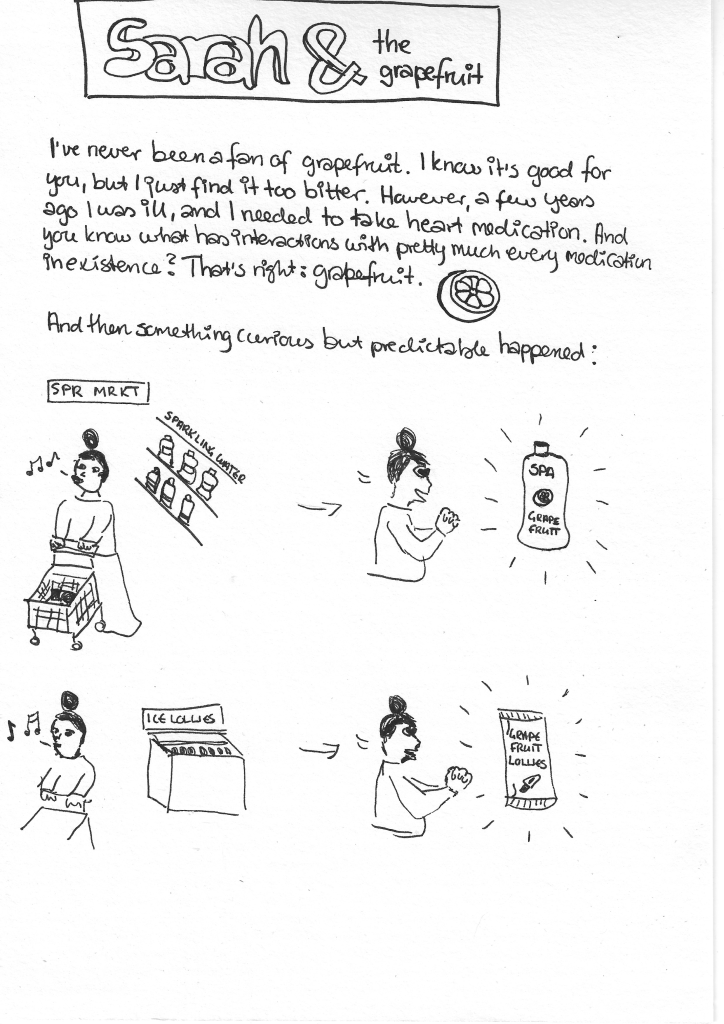 Sarah & the grapefruit
I've never been a fan of grapefruit. I know it's good for
you, but I just find it too bitter. However, a few years
ago I was ill, and I needed to take heart medication. And
you know what has interactions with pretty much every medication
in existence? That's right: grapefruit.
And then something curious but predictable happened:
SPR MRKT
SPARKLING WATER
SPA
GRAPE
FRUIT
ICE LOLLIES
GRAPE
FRUIT
LOLLIES